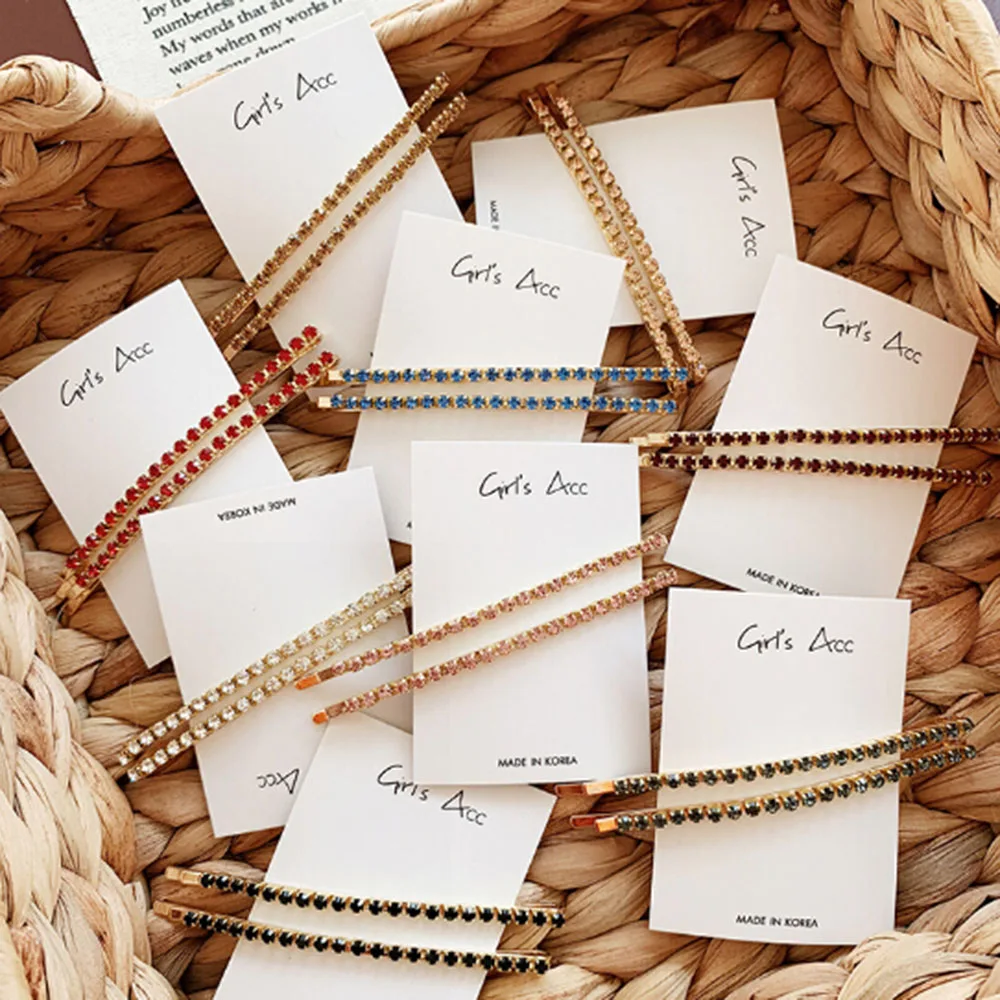 Joy fre
numberless
My words that are
waves when my works
down.
Girl's Acc
Girl's Acc
MADE
Girl's Acc
Girl's Acc
Girl's Acc
MADE IN KOREA
Girl's Acc
MADE IN KOREA
MADE IN KOREA
Girl's Acc
Acc
MADE IN KOREA
Girl's Acc